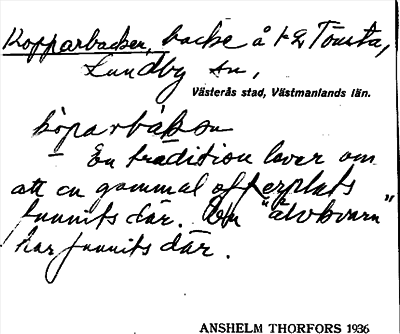 Kopparbacken, backe å 1-2 Tomta,
Lundby sn,
Västerås stad, Västmanlands län.
kòparbàkən
— En tradition lever om
att en gammal offerplats
funnits där. En "älvkvarn"
har funnits där.
ANSHELM THORFORS 1936